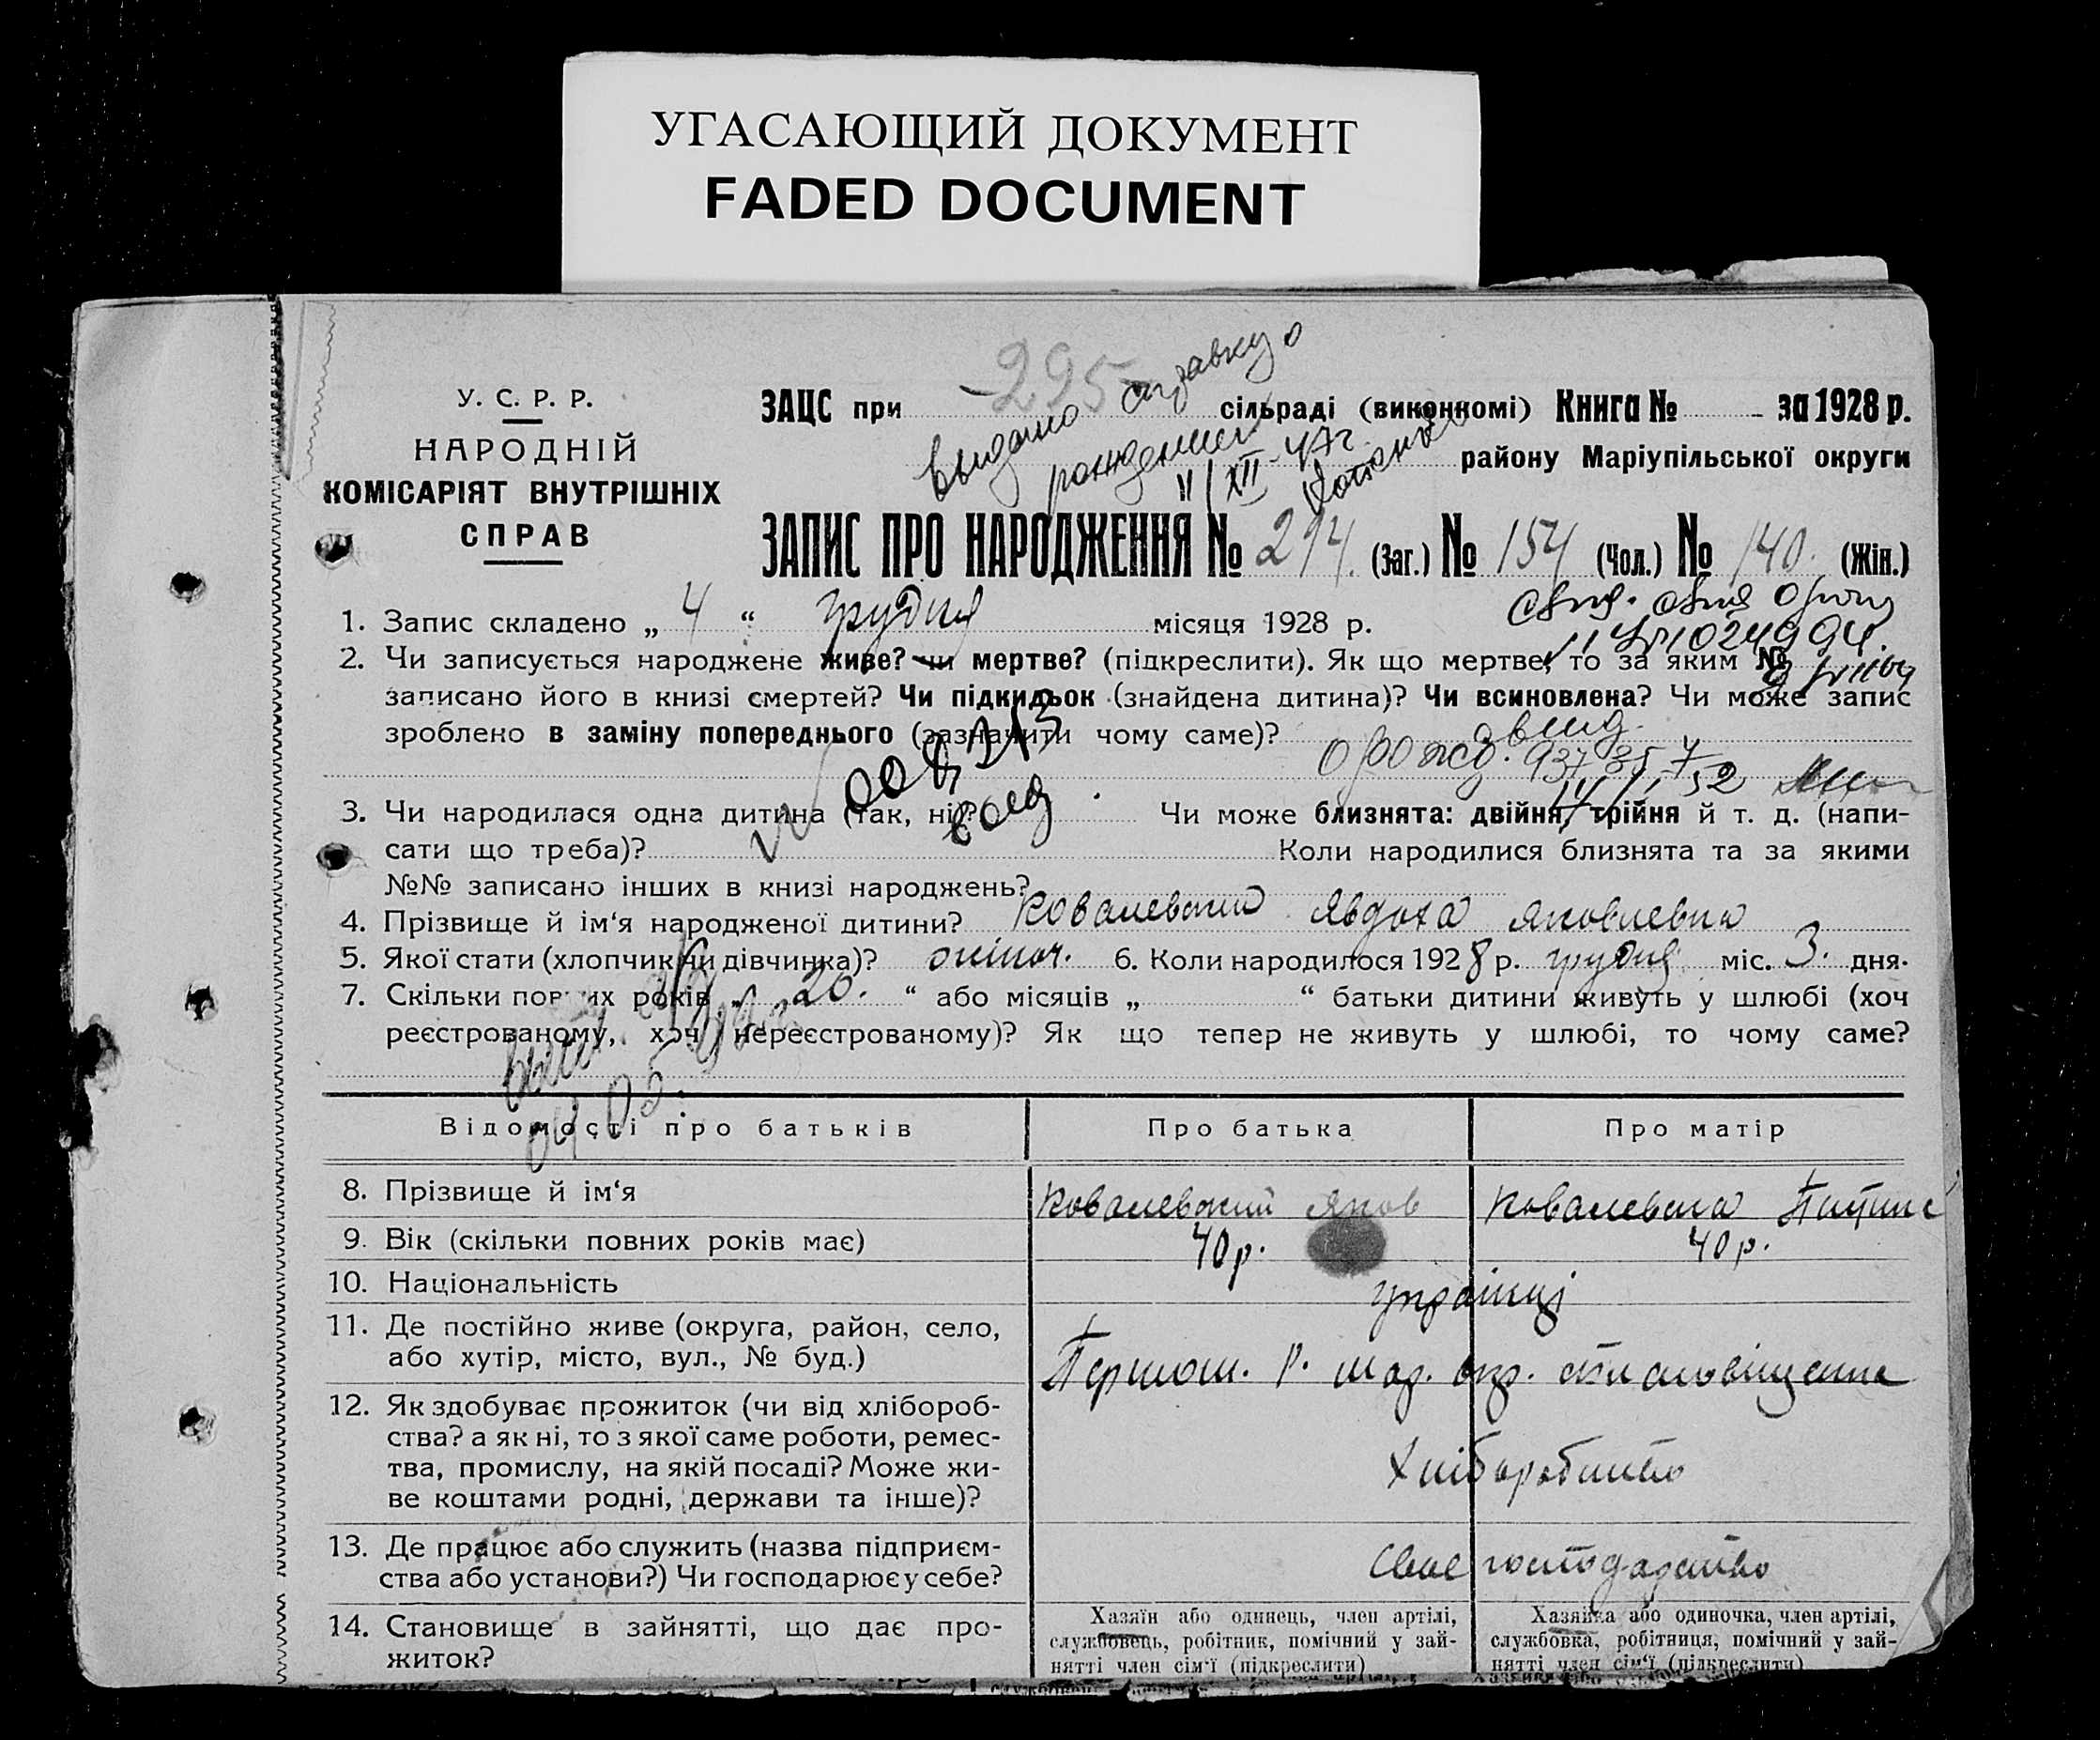 УГАСАЮЩИЙ ДОКУМЕНТ
FADED DOCUMENT
-295-
Выдано справку о
рождении
11/XII-47г.
У. С. Р. Р.
НАРОДНІЙ
КОМІСАРІЯТ ВНУТРІШНІХ
СПРАВ
ЗАЦС при сільраді (виконкомі) Книга № за 1928 р.
району Маріупільської округи
ЗАПИС ПРО НАРОДЖЕННЯ № 294. (Заг.) № 154 (Чол.) № 140. (Жін.)
1. Запис складено „ 4 “ грудня місяця 1928 р.
2. Чи записується народжене живе? чи мертве? (підкреслити). Як що мертве, то за яким №
записано його в книзі смертей? Чи підкидьок (знайдена дитина)? Чи всиновлена? Чи може запис
зроблено в заміну попереднього (зазначити чому саме)?
о рожд.
3. Чи народилася одна дитина (так, ні)? Чи може близнята: двійня, трійня й т. д. (напи-
сати що треба)? Коли народилися близнята та за якими
№№ записано інших в книзі народжень?
4. Прізвище й ім‘я народженої дитини? Ковалевська Явдоха Яковлевна
5. Якої стати (хлопчик чи дівчинка)? жіноч. 6. Коли народилося 1928 р. грудня міс. 3. дня.
7. Скільки повних років „ 20. “ або місяців „ “ батьки дитини живуть у шлюбі (хоч
реєстрованому, хоч нереєстрованому)? Як що тепер не живуть у шлюбі, то чому саме?
Відомості про батьків Про батька Про матір
8. Прізвище й ім‘я Ковалевский Яков Ковалевска
9. Вік (скільки повних років має) 40 р. 40 р.
10. Національність українці
11. Де постійно живе (округа, район, село,
або хутір, місто, вул., № буд.)
12. Як здобуває прожиток (чи від хлібороб-
ства? а як ні, то з якої саме роботи, ремес-
тва, промислу, на якій посаді? Може жи-
ве коштами родні, держави та інше)?
Хліборобство
13. Де працює або служить (назва підприєм-
ства або установи?) Чи господарює у себе?
Свое господарство
14. Становище в зайнятті, що дає про-
житок?
Хазяїн або одинець, член артілі,
службовець, робітник, помічний у зай-
нятті член сім‘ї (підкреслити)
Хазяйка або одиночка, член артілі,
службовка, робітниця, помічний у зай-
нятті член сім‘ї (підкреслити)